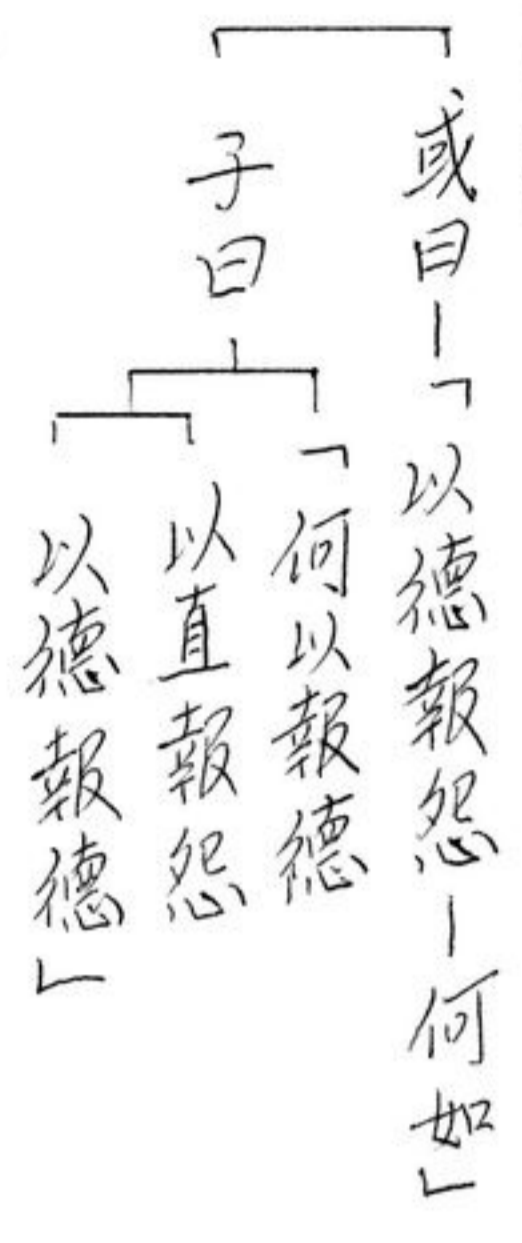 或曰—「以德報怨—何如」
子曰
「何以報德
以直報怨
以德報德」